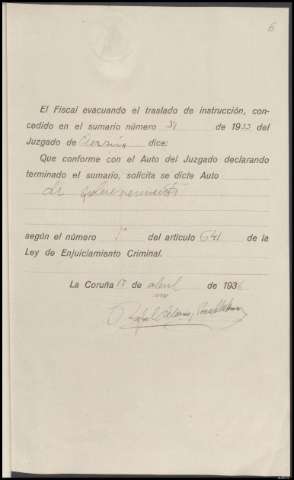 6
El Fiscal evacuando el traslado de instrucción, con-
cedido en el sumario número 31 de 1933 del
Juzgado de dice:
Que conforme con el Auto del Juzgado declarando
terminado el sumario, solicita se dicte Auto
de sobreseimiento
según el número 1º del artículo 641 de la
Ley de Enjuiciamiento Criminal.
La Coruña 17 de abril de 1936
Rafael